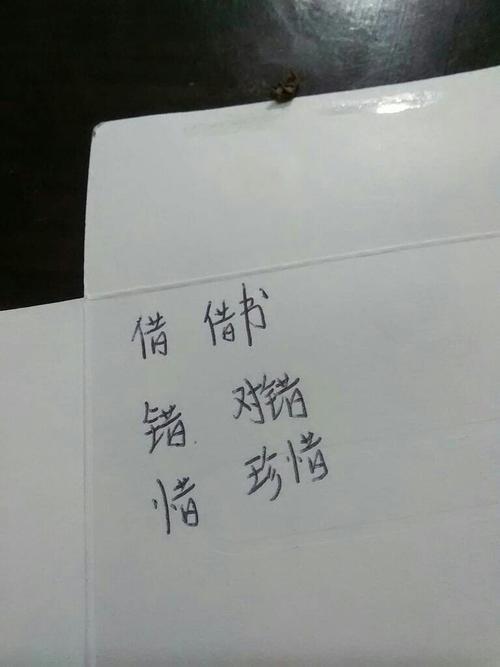 借 借书
错 对错
惜 珍惜